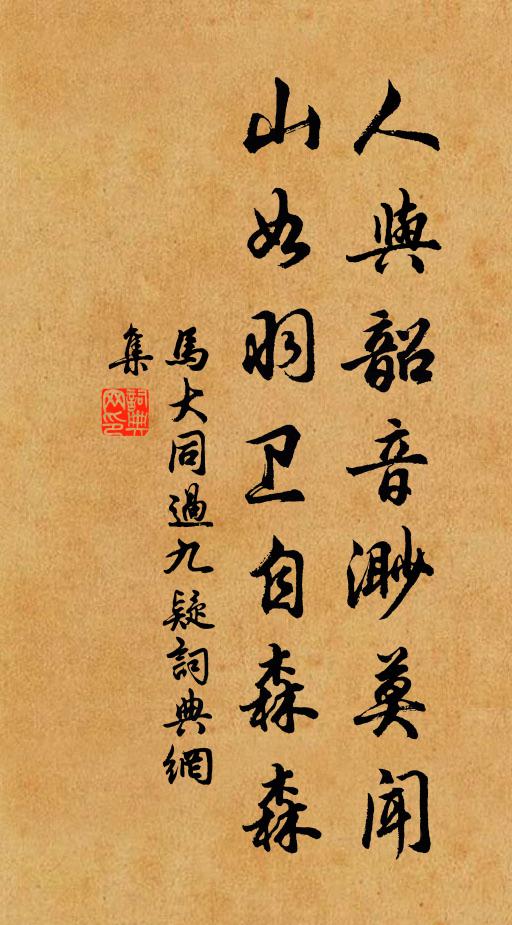 人與韶音渺莫闻
山如羽卫自森森
馬大同過九疑詞典網
集
詞典網印